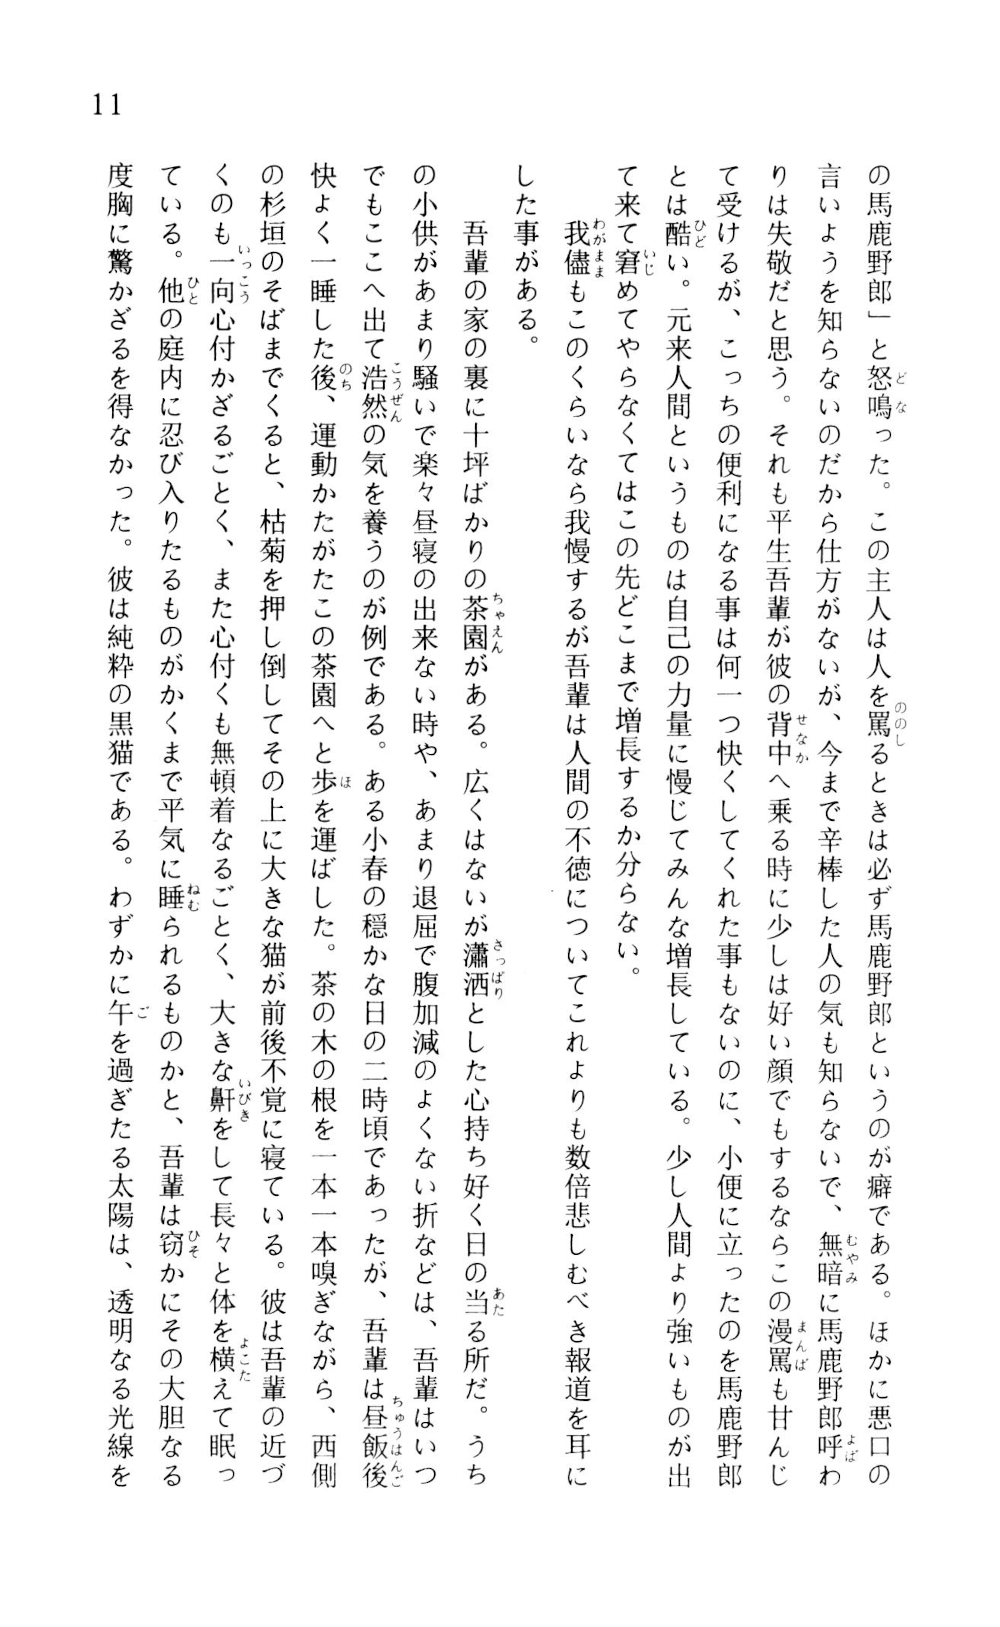 11
の馬鹿野郎」と怒鳴った。この主人は人を罵るときは必ず馬鹿野郎というのが癖である。ほかに悪口の
言いようを知らないのだから仕方がないが、今まで辛棒した人の気も知らないで、無暗に馬鹿野郎呼わ
りは失敬だと思う。それも平生吾輩が彼の背中へ乗る時に少しは好い顔でもするならこの漫罵も甘んじ
て受けるが、こっちの便利になる事は何一つ快くしてくれた事もないのに、小便に立ったのを馬鹿野郎
とは酷い。元来人間というものは自己の力量に慢じてみんな増長している。少し人間より強いものが出
て来て窘めてやらなくてはこの先どこまで増長するか分らない。
我儘もこのくらいなら我慢するが吾輩は人間の不徳についてこれよりも数倍悲しむべき報道を耳に
した事がある。
吾輩の家の裏に十坪ばかりの茶園がある。広くはないが瀟洒とした心持ち好く日の当る所だ。うち
の小供があまり騒いで楽々昼寝の出来ない時や、あまり退屈で腹加減のよくない折などは、吾輩はいつ
でもここへ出て浩然の気を養うのが例である。ある小春の穏かな日の二時頃であったが、吾輩は昼飯後
快よく一睡した後、運動かたがたこの茶園へと歩を運ばした。茶の木の根を一本一本嗅ぎながら、西側
の杉垣のそばまでくると、枯菊を押し倒してその上に大きな猫が前後不覚に寝ている。彼は吾輩の近づ
くのも一向心付かざるごとく、また心付くも無頓着なるごとく、大きな鼾をして長々と体を横えて眠っ
ている。他の庭内に忍び入りたるものがかくまで平気に睡られるものかと、吾輩は窃かにその大胆なる
度胸に驚かざるを得なかった。彼は純粋の黒猫である。わずかに午を過ぎたる太陽は、透明なる光線を